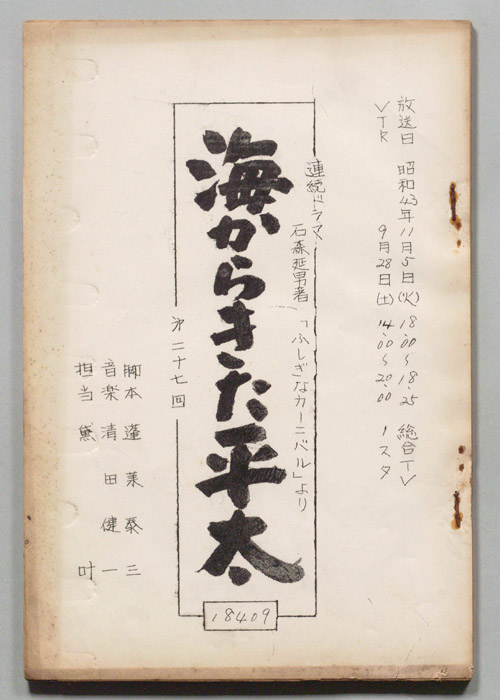 放送日 昭和43年11月5日(火) 18.00〜18.25 総合TV
VTR 9月28日(土) 14.00〜20.00 1スタ
連続ドラマ
石森延男著「ふしぎなカーニバル」より
海からきた平太
第二十七回
脚本 蓬莱泰三
音楽 清田健一
担当 黛 叶
18409